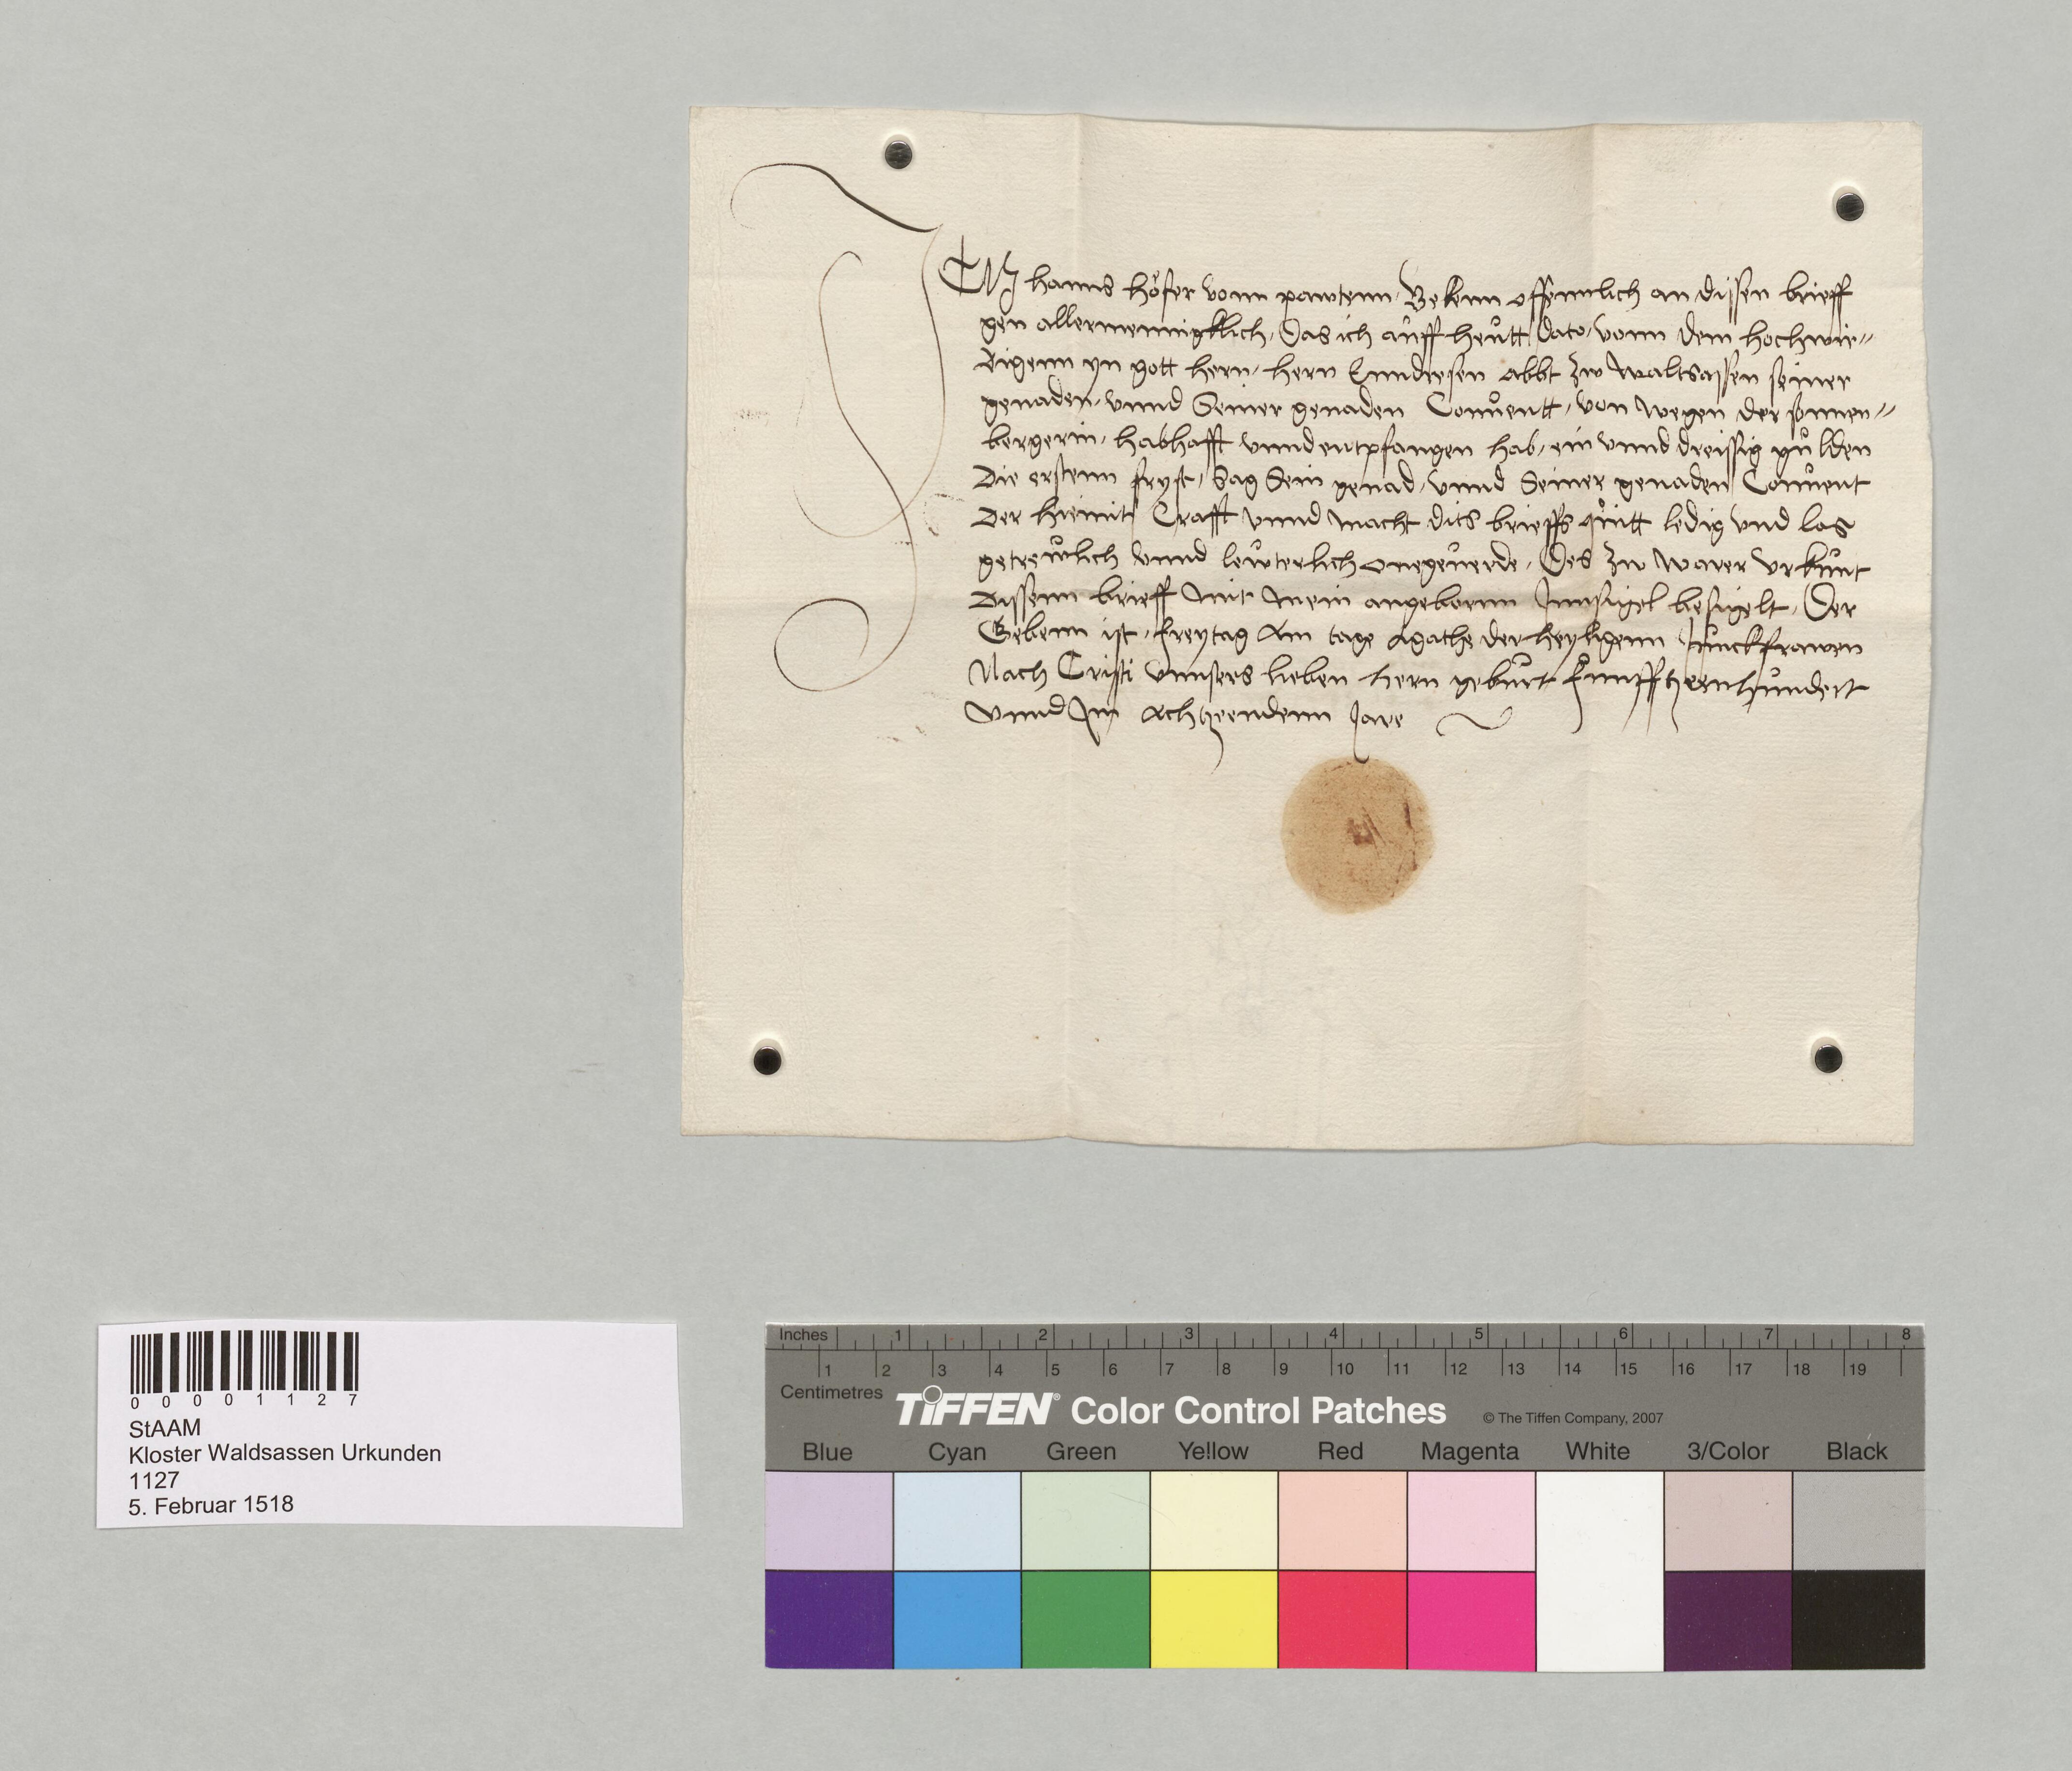 ICH hanns höfer vonn pawtenn, Bekenn offennlich an dissen brieff
gen allermennigklich, Das ich aůff heůtt dato, vonn dem hochwir-
digenn yn gott hern, hern Enndresen abbt zw waltsassen seiner
genaden, vnnd Seiner genaden Conůentt, von wegen der sonnen-
bergerin, habhafft vnnd entpfangen hab, ein vnnd dreissig gůlden
Die erstenn fryst, Sag Sein genad, vnnd Seiner genaden Conůent
Der hiemit Crafft vnnd macht dits brieffs qůitt ledig vnd los
getrewlich vnnd lewterlich onegeůerde, Des zw warer vrkůnt
Dissenn brieff Mit Mein angebornn Innsigel besigelt, Der
Gebenn ist, freytag Am tage Agathe der heyligenn Jůnckfrawen
Nach Cristi vnnsers lieben hern gebůrt Fůnffzehnhůndert
vnnd Im Achtzeendenn Jare
00001127
StAAM
Kloster Waldsassen Urkunden
1127
5. Februar 1518
Inches 1 2 3 4 5 6 7 8
1 2 3 4 5 6 7 8 9 10 11 12 13 14 15 16 17 18 19
Centimetres
TIFFEN® Color Control Patches © The Tiffen Company, 2007
Blue Cyan Green Yellow Red Magenta White 3/Color Black